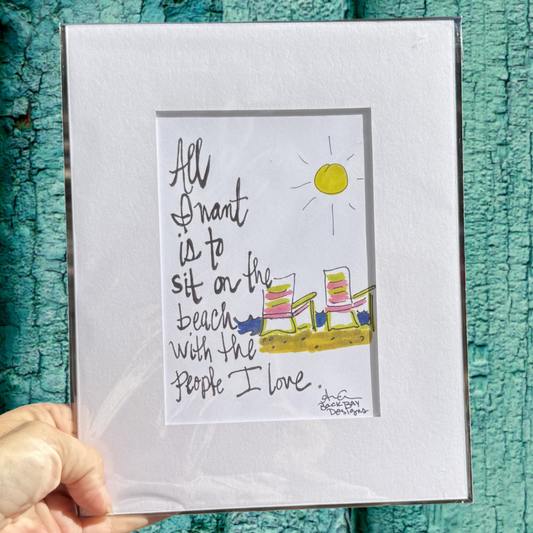 All
I want
is to
sit on the
beach
with the
people I love.
BackBAY
Designs